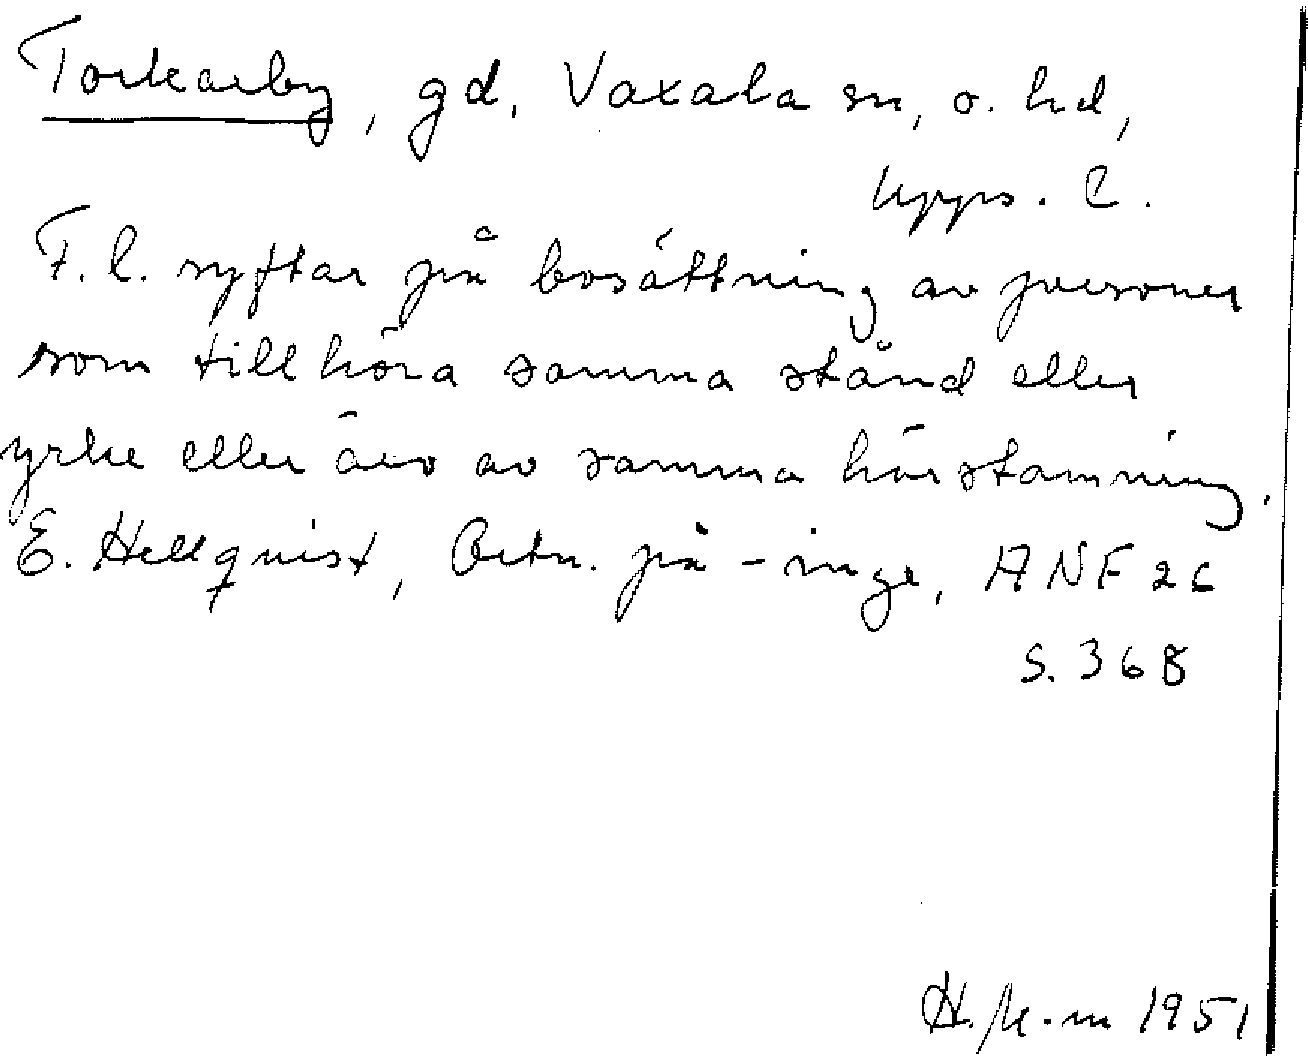 Torkarby, gd, Vaxala sn, o. hd,
Upps. l.
F. l. syftar på bosättning av personer
som tillhöra samma stånd eller
yrke eller äro av samma härstamning.
E. Hellquist, Betn. på -inge, ANF 26
S. 368
H. M-m 1951